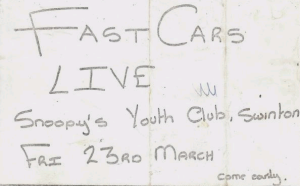 FAST CARS
LIVE
Snoopy's Youth Club, Swinton
FRI 23RD MARCH
come early.